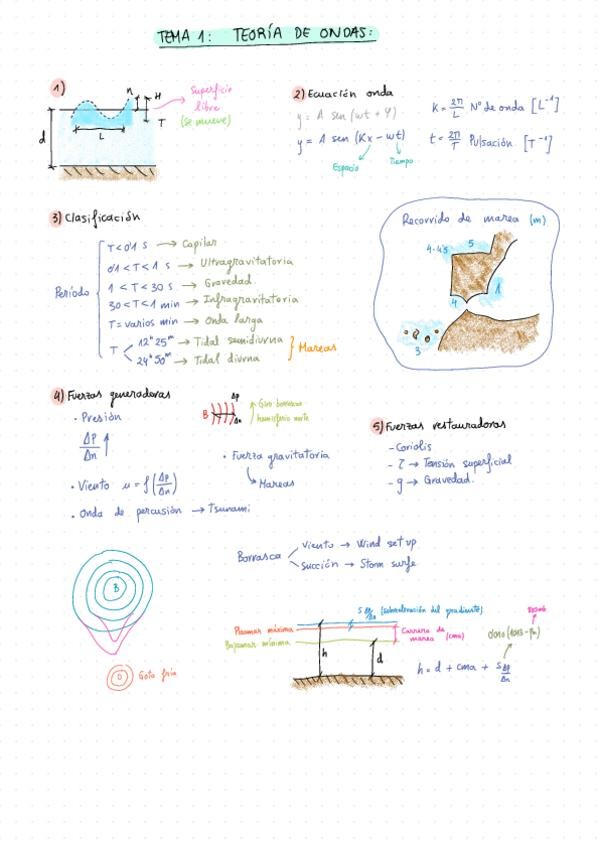 TEMA 1: TEORÍA DE ONDAS:
1)
n
H
T
L
d
Superficie
libre
(se mueve)
2) Ecuación onda
y = A sen (wt + φ)
y = A sen (Kx - wt)
Espacio
Tiempo
K = 2π/L Nº de onda [L⁻¹]
t = 2π/T Pulsación [T⁻¹]
3) Clasificación
Período
T < 0'1 s → Capilar
0'1 < T < 1 s → Ultragravitatoria
1 < T < 30 s → Gravedad
30 < T < 1 min → Infragravitatoria
T = varios min → Onda larga
T
12ʰ 25ᵐ → Tidal semidiurna
24ʰ 50ᵐ → Tidal diurna
} Mareas
Recorrido de marea (m)
5
4-4'5
4
1
3
4) Fuerzas generadoras
· Presión
Δp/Δn ↑
· Viento u = f (Δp/Δn)
· Onda de percusión → Tsunami
B
Δp
Δn
Giro borrascas
hemisferio norte
· Fuerza gravitatoria
Mareas
5) Fuerzas restauradoras
- Coriolis
- τ → Tensión superficial
- g → Gravedad.
Borrasca
Viento → Wind set up
Succión → Storm surfe
B
D
Gota fría
S Δp/Δn (sobreelevación del gradiente)
Pleamar máxima
Bajamar mínima
Carrera de
marea (cma)
h
d
h = d + cma + S Δp/Δn